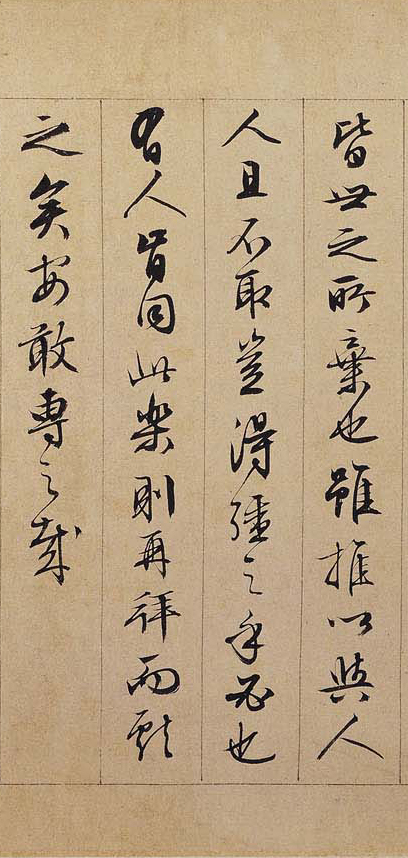 皆世之所棄也雖推以與人
人且不取豈得彊之乎必也
有人肯同此樂則再拜而獻
之矣安敢專之哉